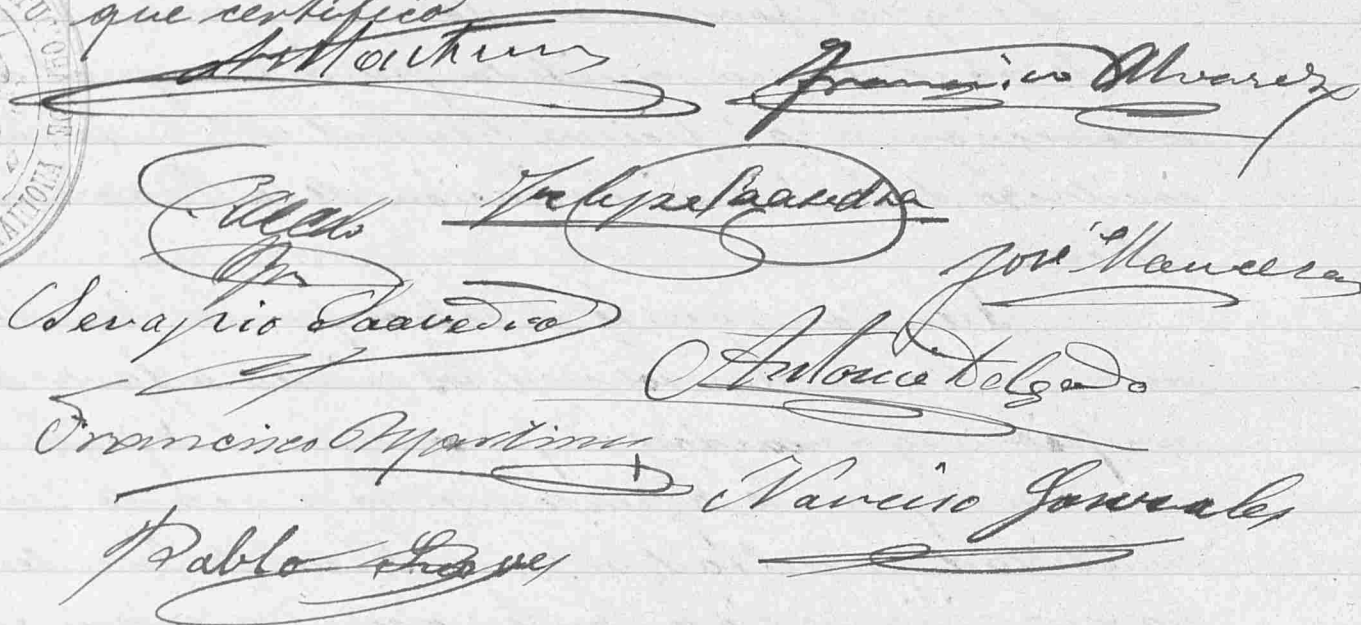 que certifico
Francisco Alvarez
Felipe Saavedra
José Mancera
Serapio Saavedra
Antonio Delgado
Francisco Martinez
Narciso Gonzales
Pablo